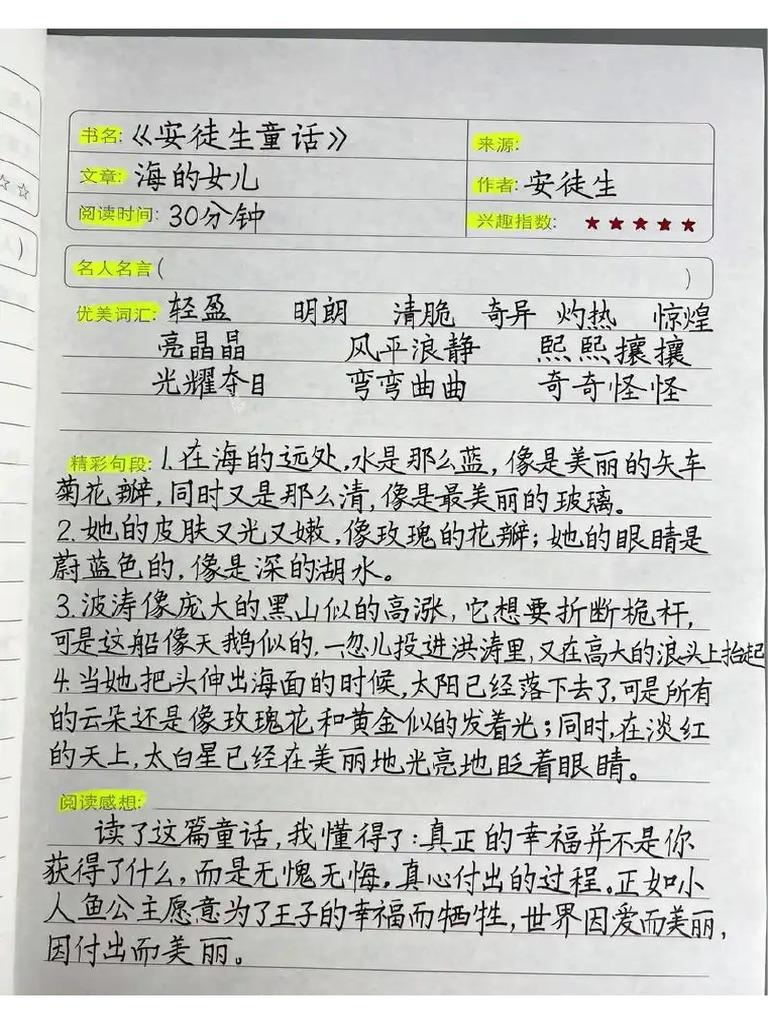 书名:《安徒生童话》 来源:
文章: 海的女儿 作者: 安徒生
阅读时间: 30分钟 兴趣指数: ★★★★★
名人名言( )
优美词汇: 轻盈 明朗 清脆 奇异 灼热 惊煌
亮晶晶 风平浪静 熙熙攘攘
光耀夺目 弯弯曲曲 奇奇怪怪
精彩句段: 1.在海的远处,水是那么蓝,像是美丽的矢车
菊花瓣,同时又是那么清,像是最美丽的玻璃。
2.她的皮肤又光又嫩,像玫瑰的花瓣;她的眼睛是
蔚蓝色的,像是深的湖水。
3.波涛像庞大的黑山似的高涨,它想要折断桅杆,
可是这船像天鹅似的,一忽儿投进洪涛里,又在高大的浪头上抬起
4.当她把头伸出海面的时候,太阳已经落下去了,可是所有
的云朵还是像玫瑰花和黄金似的发着光;同时,在淡红
的天上,太白星已经在美丽地光亮地眨着眼睛。
阅读感想:
读了这篇童话,我懂得了:真正的幸福并不是你
获得了什么,而是无愧无悔,真心付出的过程。正如小
人鱼公主愿意为了王子的幸福而牺牲,世界因爱而美丽,
因付出而美丽。